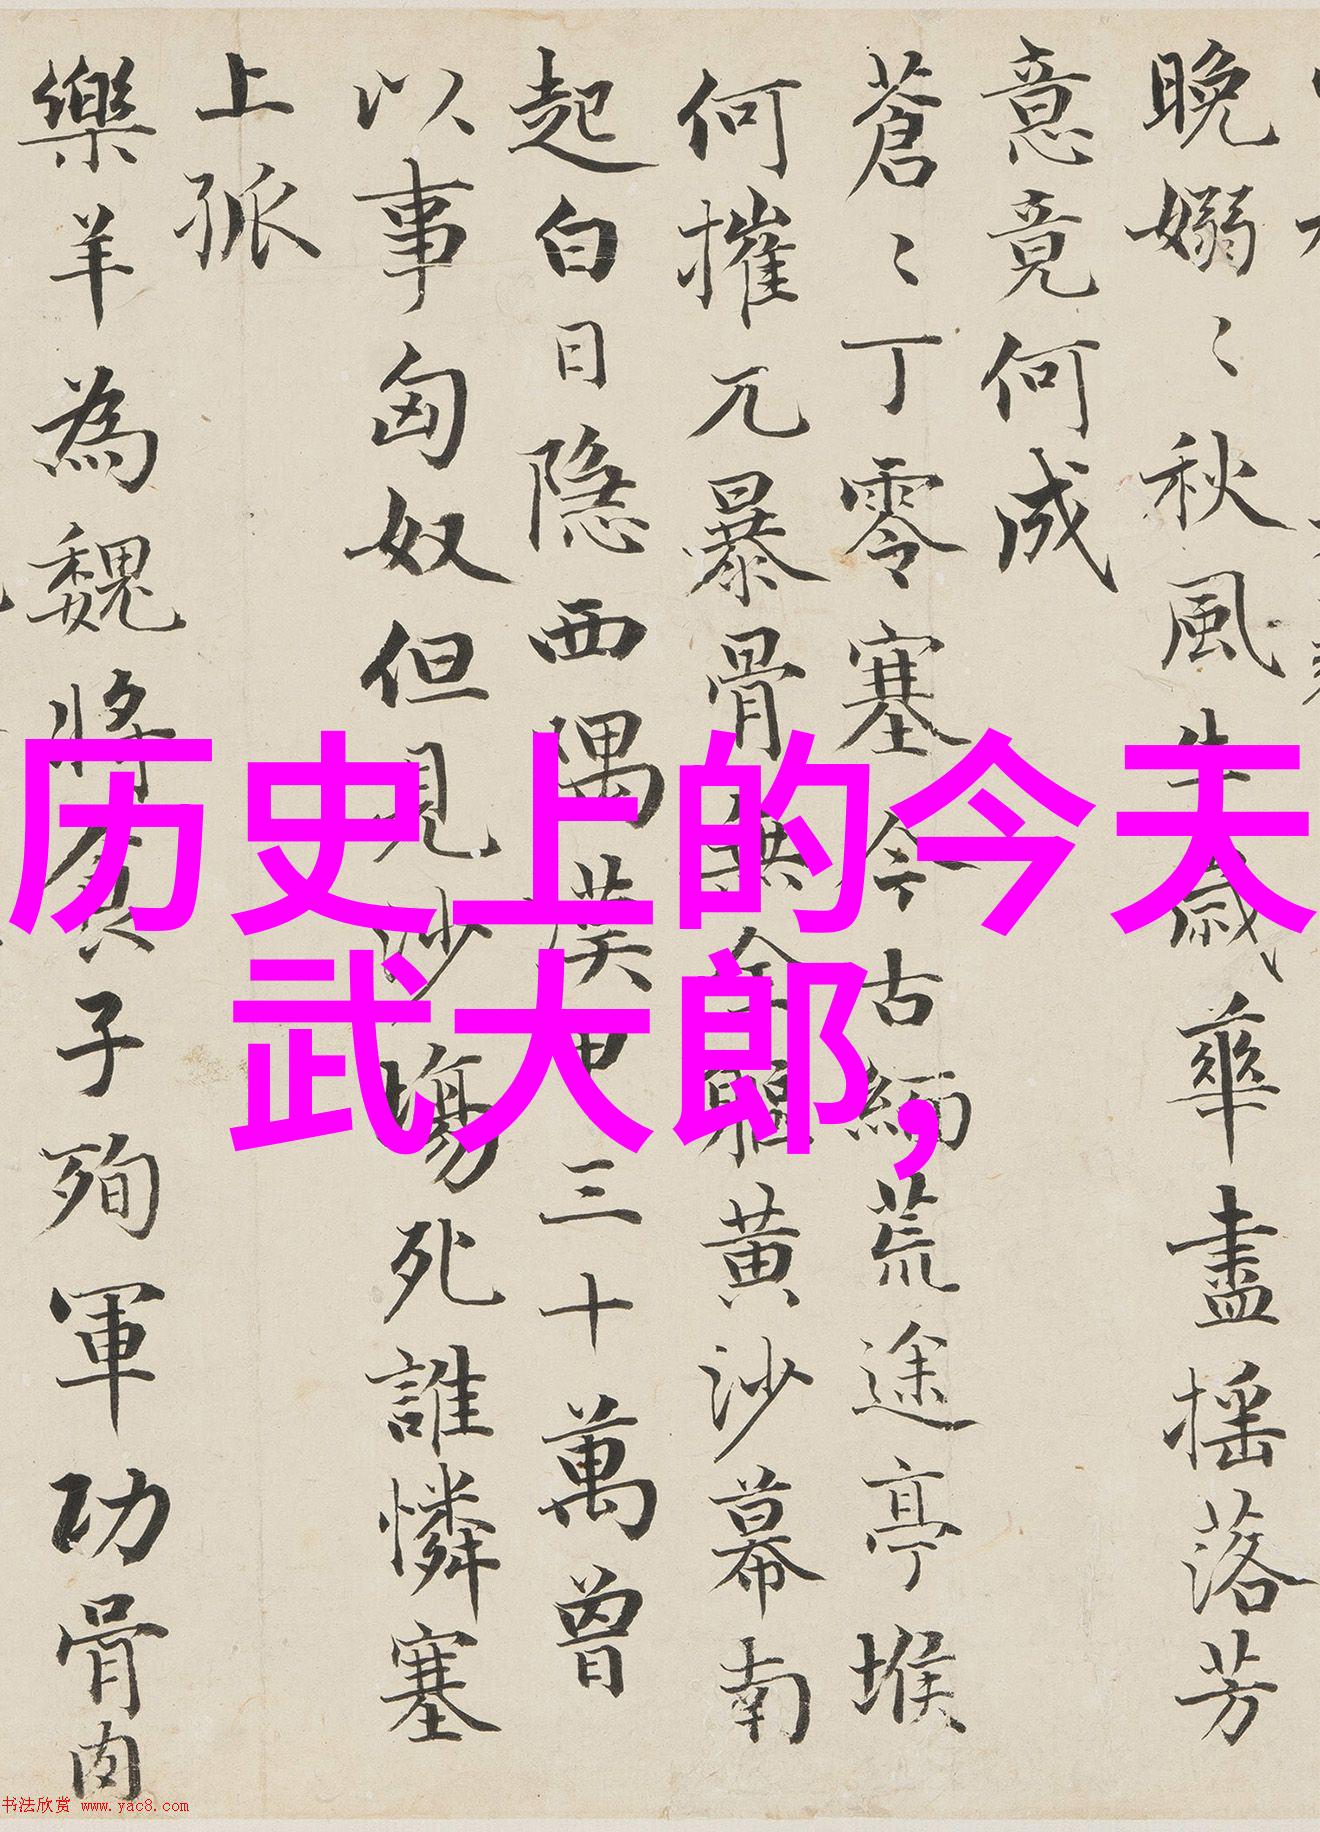 晚嫋〻秋風生歲華盡摇落芳
意竟何成
蒼〻丁零塞今古緬荒途亭堠
何摧兀暴骨無全軀黄沙幕南
起白日隱西隅漢甲三十萬曾
以事匈奴但見沙場死誰憐塞
上孤
樂羊為魏將食子殉軍功骨肉
历史上的今天
武大郎,
书法欣赏 www.yac8.com